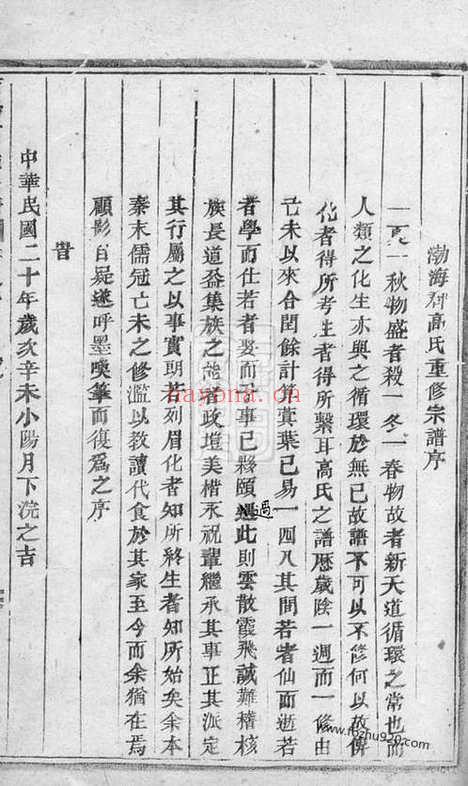 渤海郡高氏重修宗譜序
一夏一秋物盛者殺一冬一春物故者新天道循環之常也而
人類之化生亦與之循環於無已故譜不可以不修何以故俾
化者得所考生者得所繫耳高氏之譜歷歲陰一週而一修由
己未以來合閏餘計算蓂葉已易一四八其間若者仙而逝若
者學而仕若者娶而 事已夥頤過此則雲散霞飛誠難稽核
族長道益集族之能者政壇美楷承祝輩繼承其事正其派定
其行屬之以事實明若列眉化者知所終生者知所始矣余本
秦末儒冠亡未之修濫以教讀代食於其家至今而余猶在焉
顧影自疑遂呼墨喚筆而復為之序
時
中華民國二十年歲次辛未小陽月下浣之吉
nayona.cn
www.fozhu920.com